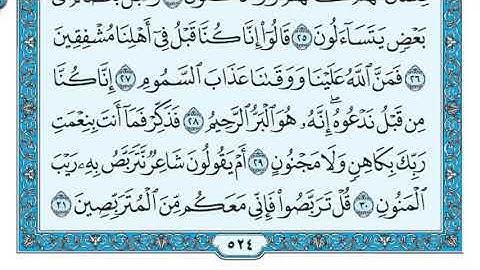 بَعْضٍ يَتَسَآءَلُونَ ٢٥ قَالُوٓا۟ إِنَّا كُنَّا قَبْلُ فِىٓ أَهْلِنَا مُشْفِقِينَ
٢٦ فَمَنَّ ٱللَّهُ عَلَيْنَا وَوَقَىٰنَا عَذَابَ ٱلسَّمُومِ ٢٧ إِنَّا كُنَّا
مِن قَبْلُ نَدْعُوهُ ۖ إِنَّهُۥ هُوَ ٱلْبَرُّ ٱلرَّحِيمُ ٢٨ فَذَكِّرْ فَمَآ أَنتَ بِنِعْمَتِ
رَبِّكَ بِكَاهِنٍ وَلَا مَجْنُونٍ ٢٩ أَمْ يَقُولُونَ شَاعِرٌ نَّتَرَبَّصُ بِهِۦ رَيْبَ
ٱلْمَنُونِ ٣٠ قُلْ تَرَبَّصُوا۟ فَإِنِّى مَعَكُم مِّنَ ٱلْمُتَرَبِّصِينَ ٣١
٥٢٤